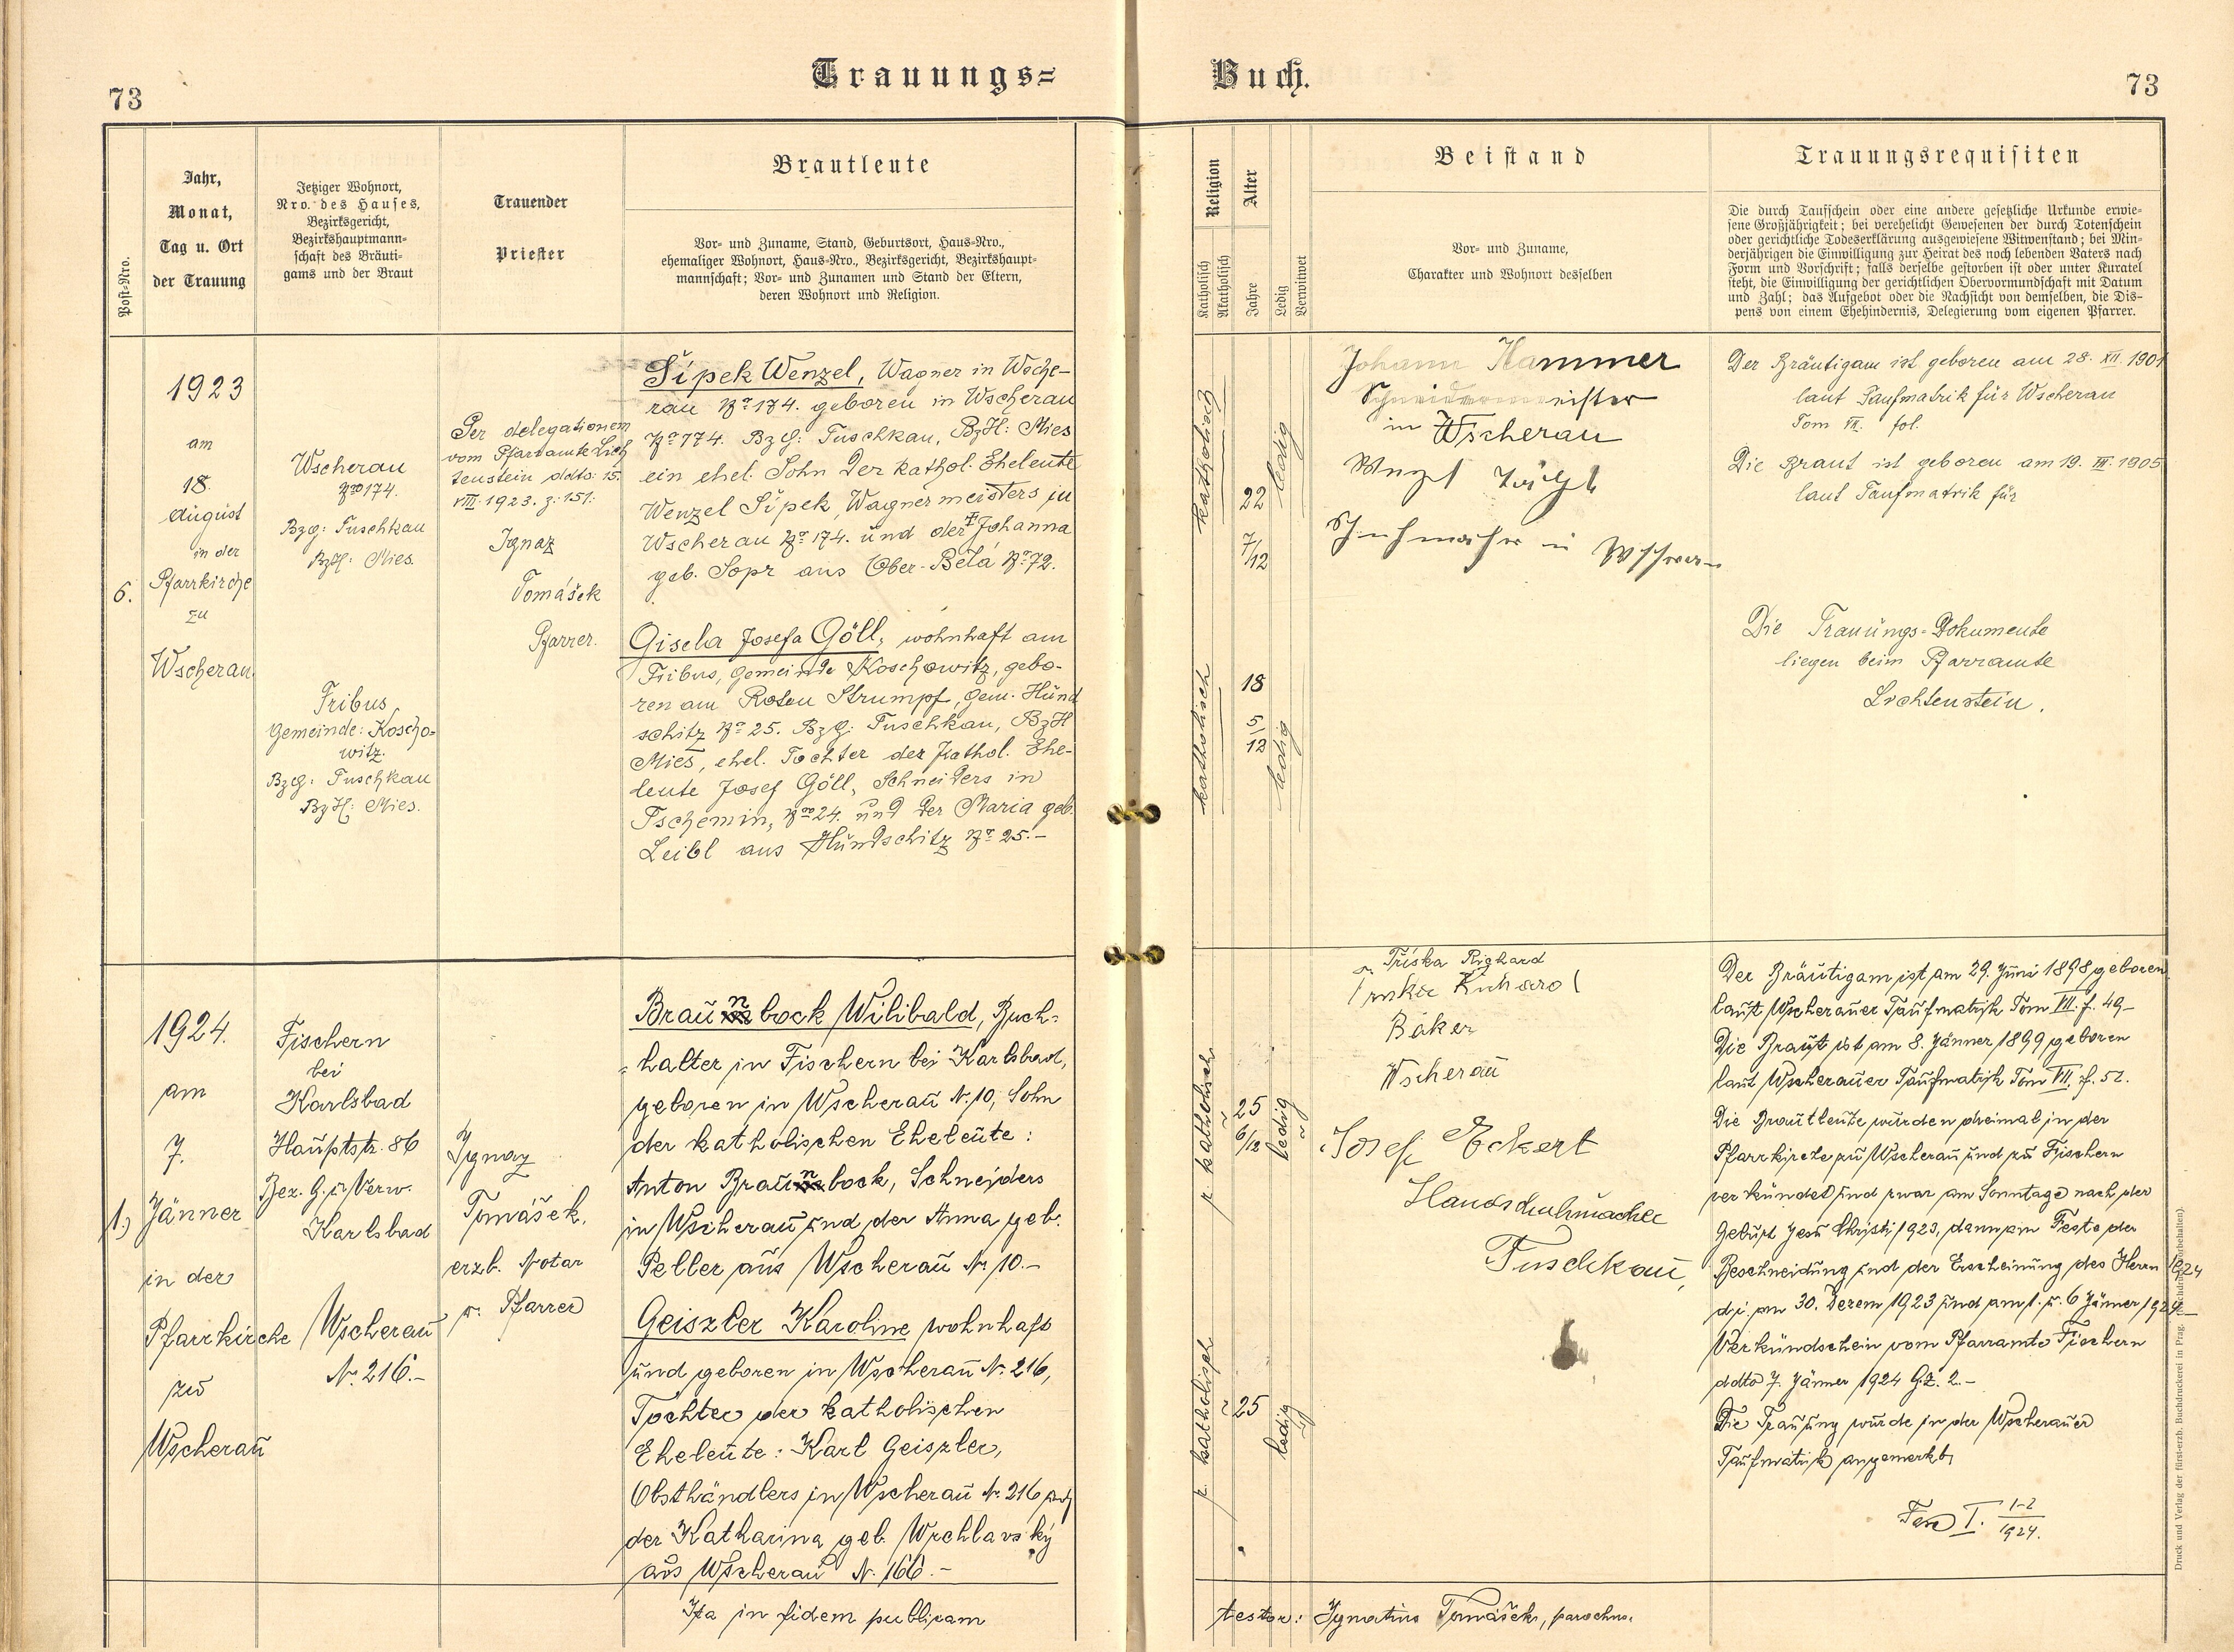 73
Trauungs=
Buch.
73
Post-Nro.
Jahr,
Monat,
Tag u. Ort
der Trauung
Jetziger Wohnort,
Nro. des Hauses,
Bezirksgericht,
Bezirkshauptmann-
schaft des Bräuti-
gams und der Braut
Trauender
Priester
Brautleute
Vor- und Zuname, Stand, Geburtsort, Haus-Nro.,
ehemaliger Wohnort, Haus-Nro., Bezirksgericht, Bezirkshaupt-
mannschaft; Vor- und Zunamen und Stand der Eltern,
deren Wohnort und Religion.
Religion
Katholisch
Akatholisch
Alter
Jahre
Ledig
Verwitwet
Beistand
Vor- und Zuname,
Charakter und Wohnort desselben
Trauungsrequisiten
Die durch Taufschein oder eine andere gesetzliche Urkunde erwie-
sene Großjährigkeit; bei verehelicht Gewesenen der durch Totenschein
oder gerichtliche Todeserklärung ausgewiesene Witwenstand; bei Min-
derjährigen die Einwilligung zur Heirat des noch lebenden Vaters nach
Form und Vorschrift; falls derselbe gestorben ist oder unter Kuratel
steht, die Einwilligung der gerichtlichen Obervormundschaft mit Datum
und Zahl; das Aufgebot oder die Nachsicht von demselben, die Dis-
pens von einem Ehehindernis, Delegierung vom eigenen Pfarrer.
6.
1923
am
18.
August
in der
Pfarrkirche
zu
Wscherau.
Wscherau
Nro 174.
Bzg: Tuschkau
BzH: Mies.
Tribus
Gemeinde: Koscho-
witz.
Bzg: Tuschkau
BzH: Mies.
Per delegationem
vom Pfarramte Lich
tenstein ddto: 15.
VIII. 1923. z: 151.
Ignaz
Tomášek
Pfarrer.
Šípek Wenzel, Wagner in Wsche-
rau No 174. geboren in Wscherau
No 174. Bzg: Tuschkau, BzH: Mies
ein ehel. Sohn der kathol. Eheleute
Wenzel Šípek, Wagnermeisters in
Wscherau No 174. und der Johanna
geb. Sopr aus Ober-Bělá No 72.
Gisela Josefa Göll, wohnhaft am
Tribus, Gemeinde Koschowitz, gebo-
ren am Roten Strumpf, Gem. Hünd
schitz No 25. Bzg: Tuschkau, BzH
Mies, ehel. Tochter der kathol. Ehe-
leute Josef Göll, Schneiders in
Tschemin, No 24. und der Maria geb.
Leibl aus Hündschitz No 25.-
katholisch
22
7/12
ledig
katholisch
18
5
12
ledig
Johann Hammer
Schneidermeister
in Wscherau
in
Der Bräutigam ist geboren am 28. XII. 1901
laut Taufmatrik für Wscherau
Tom VII. fol.
Die Braut ist geboren am 19. III. 1905
laut Taufmatrik für
Die Trauungs-Dokumente
liegen beim Pfarramte
Lichtenstein.
1.)
1924.
am
7.
Jänner
in der
Pfarrkirche
zu
Wscherau
Fischern
bei
Karlsbad
Hauptstr. 86
Bez. G. u. Verw.
Karlsbad
Wscherau
N. 216.-
Ignaz
Tomášek,
erzb. Notar
u. Pfarrer
Braunbock Wilibald, Buch-
halter in Fischern bei Karlsbad,
geboren in Wscherau N. 10, Sohn
der katholischen Eheleute:
Anton Braunbock, Schneiders
in Wscherau und der Anna geb.
Peller aus Wscherau Nr 10.-
Geiszler Karoline wohnhaft
und geboren in Wscherau N. 216,
Tochter der katholischen
Eheleute: Karl Geiszler,
Obsthändlers in Wscherau N. 216 und
der Katharina geb. Wrchlavský
aus Wscherau N. 166.-
r. katholisch
25
6/12
ledig
r. katholisch
25
ledig
Tříska Righard
Bäker
Wscherau
Josef Eckert
Handschuhmacher
Tuschkau,
Der Bräutigam ist am 29. Juni 1898 geboren
laut Wscherauer Taufmatrik Tom VII. f. 49-
Die Braut ist am 8. Jänner 1899 geboren
laut Wscherauer Taufmatrik Tom VII. f. 52.
Die Brautleute wurden dreimal in der
Pfarrkirche zu Wscherau und zu Fischern
verkündet und zwar am Sonntage nach der
Geburt Jesu Christi 1923, dann am Feste der
Beschneidung und der Erscheinung des Herrn 1924
d.i. am 30. Dezem 1923 und am 1. u. 6 Jänner 1924-
Verkündschein vom Pfarramte Fischern
ddto 7. Jänner 1924 G.Z. 2.-
Die Trauung wurde in der Wscherauer
Taufmatrik angemerkt.
Fasc I. 1-2
1924.
Ita in fidem publicam
testor: Ignatius Tomášek, parochus.
Druck und Verlag der fürst-erzb. Buchdruckerei in Prag.